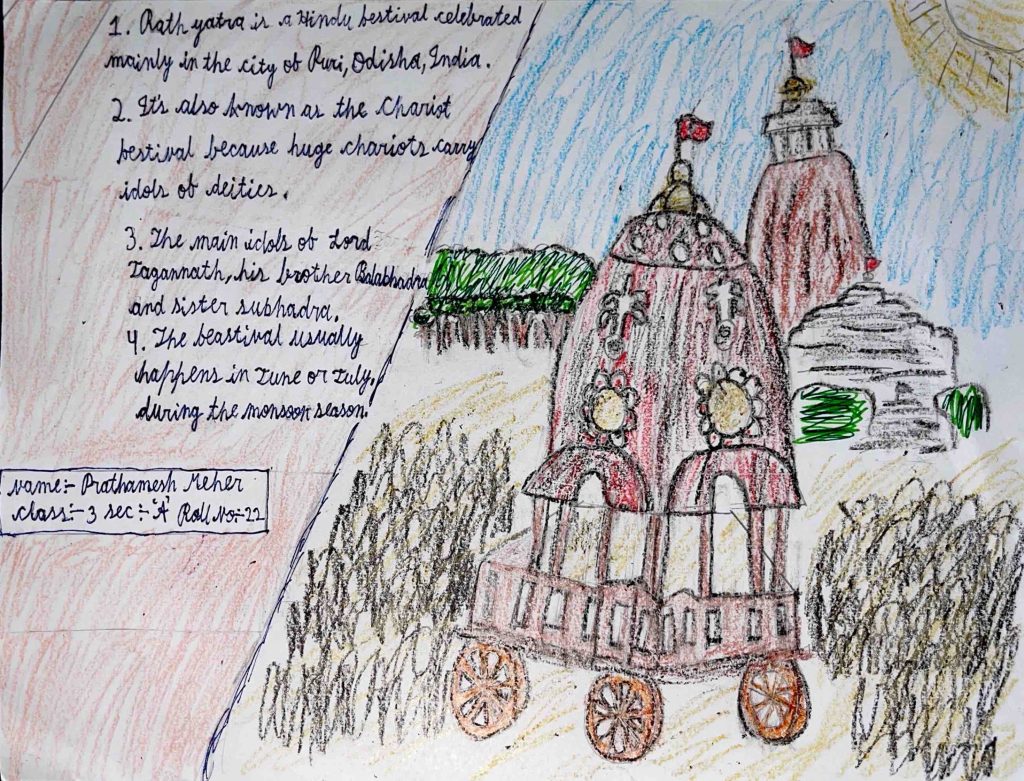 1. Rath yatra is a Hindu festival celebrated
mainly in the city of Puri, Odisha, India.
2. It's also known as the Chariot
festival because huge chariots carry
idols of deities.
3. The main idols of Lord
Jagannath, his brother Balabhadra
and sister subhadra.
4. The feastival usually
happens in June or July,
during the monsoon season.
Name:- Prathamesh Meher
class:- 3 sec:- 'A' Roll No:- 22